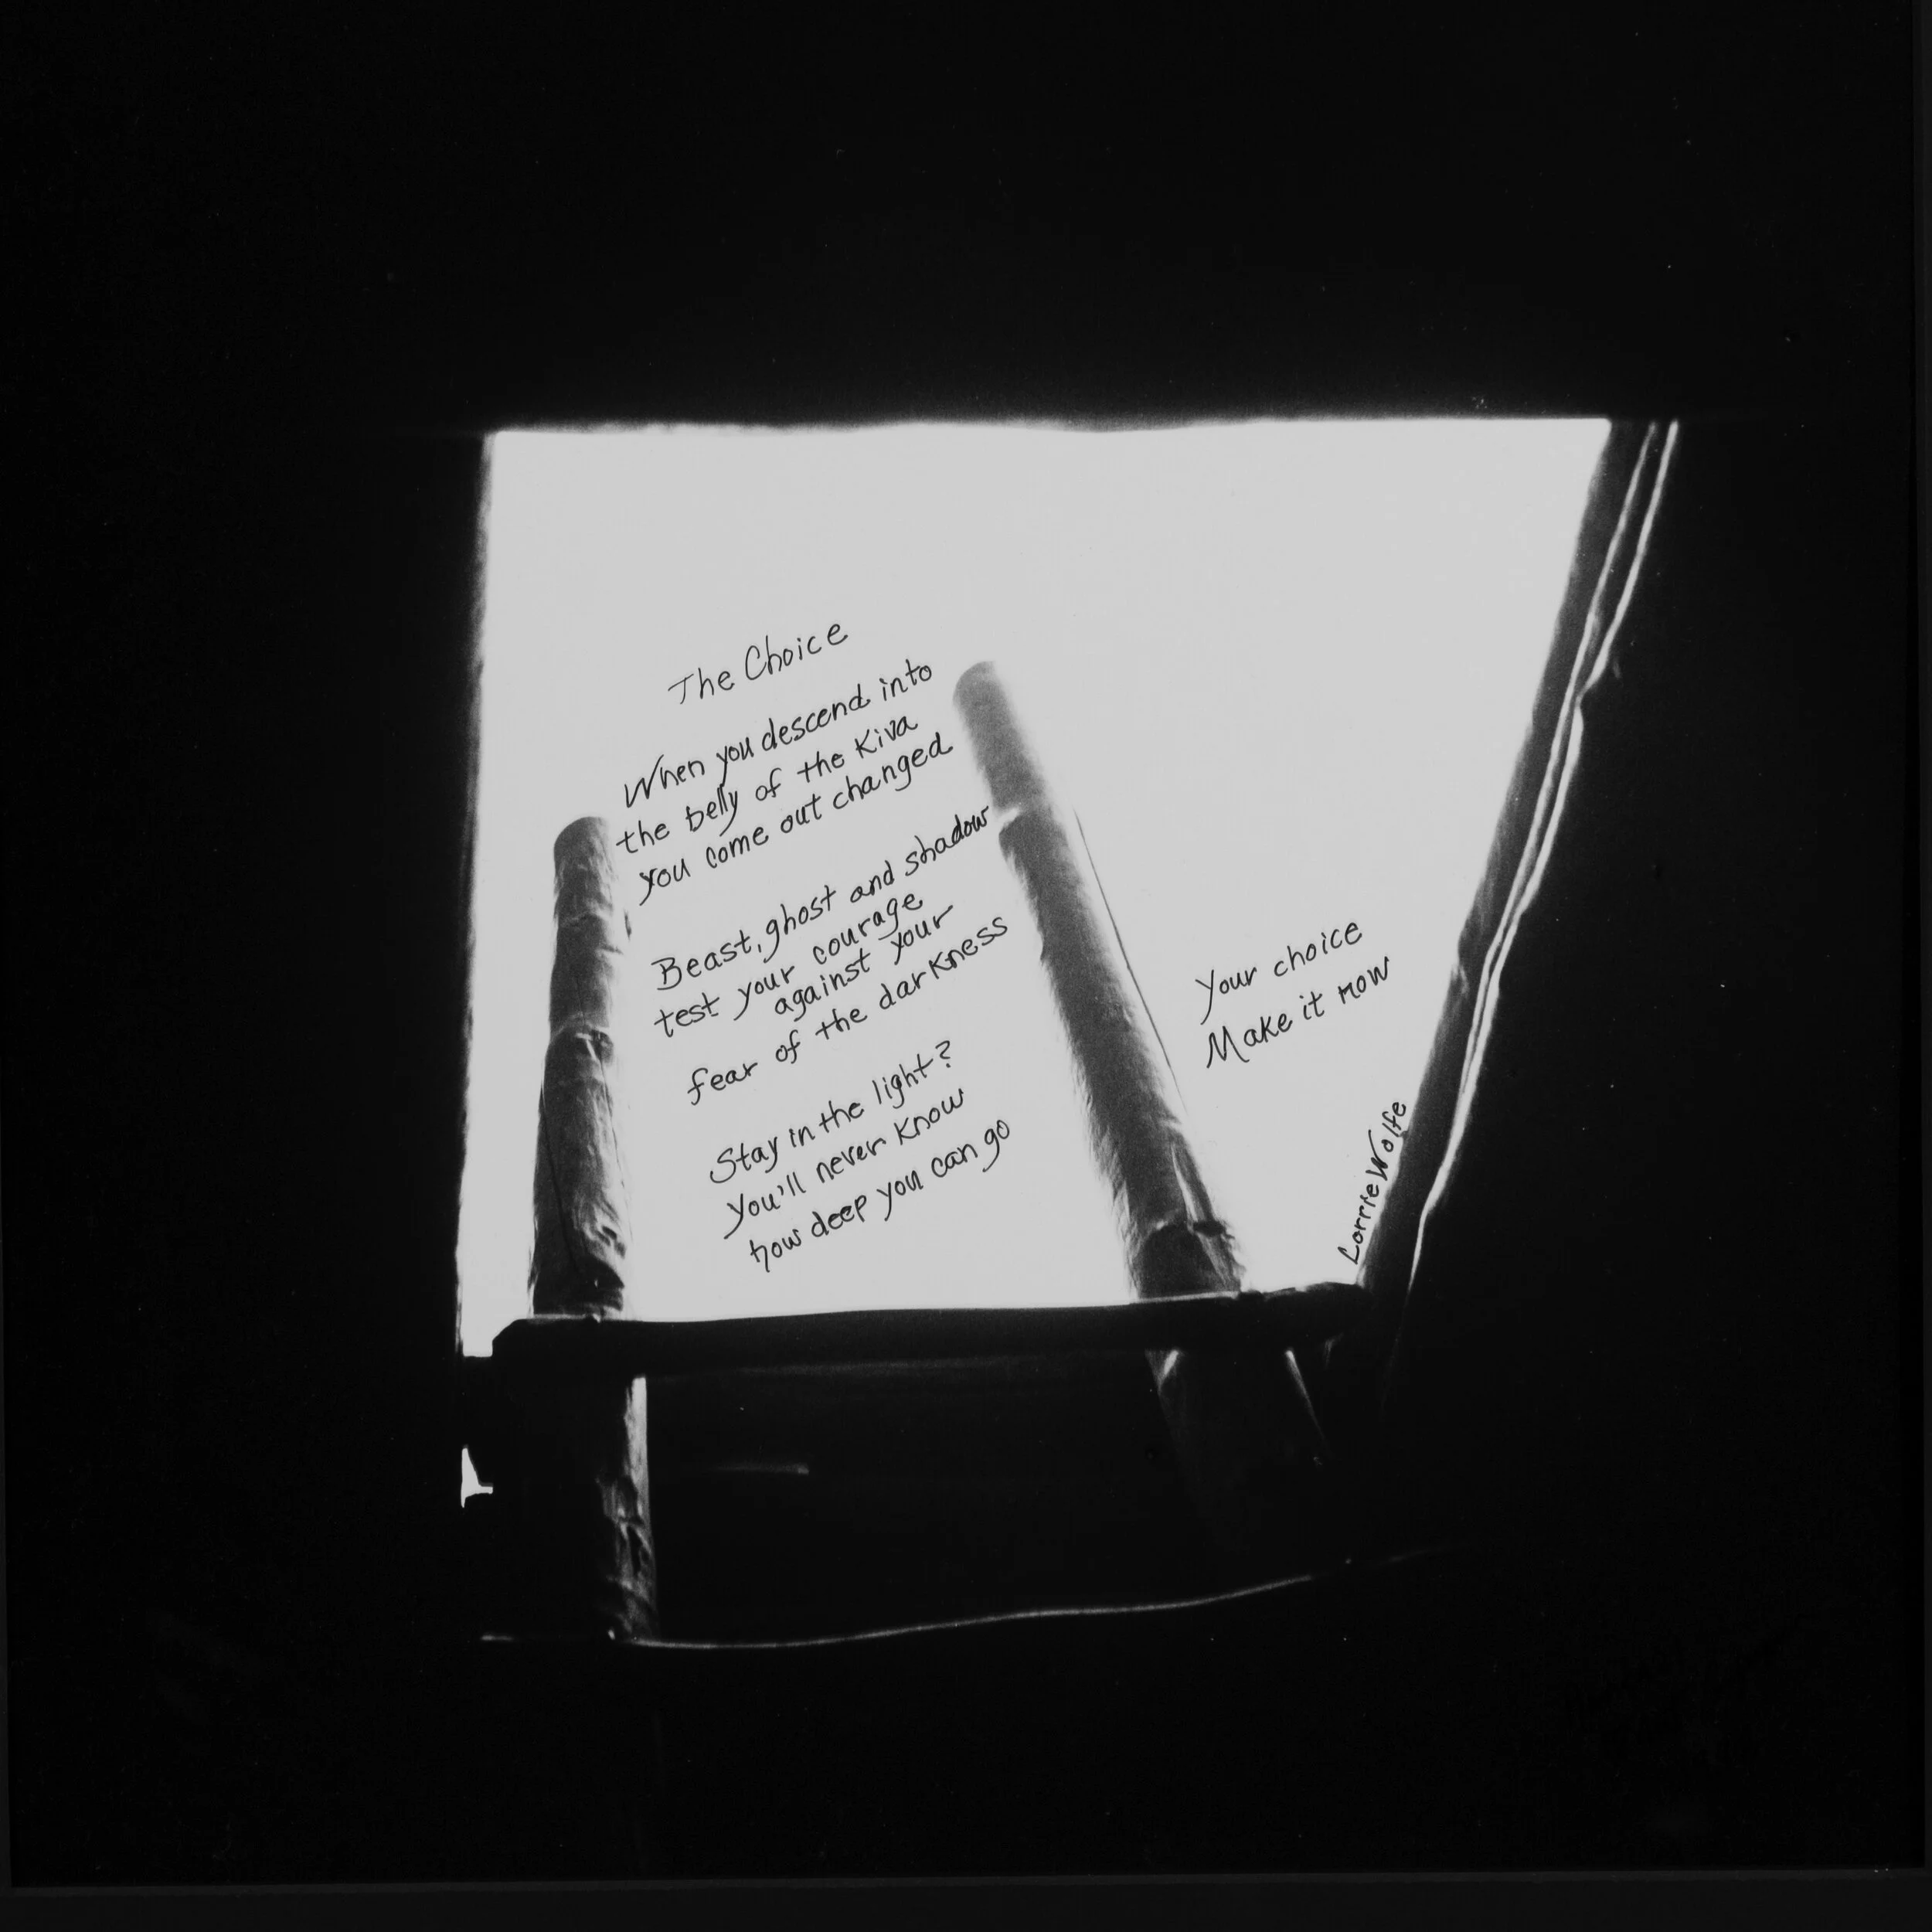 The Choice
When you descend into
the belly of the Kiva
you come out changed
Beast, ghost and shadow
test your courage
against your
fear of the darkness
Stay in the light?
You'll never know
how deep you can go
Your choice
Make it now
Lorrie Wolfe